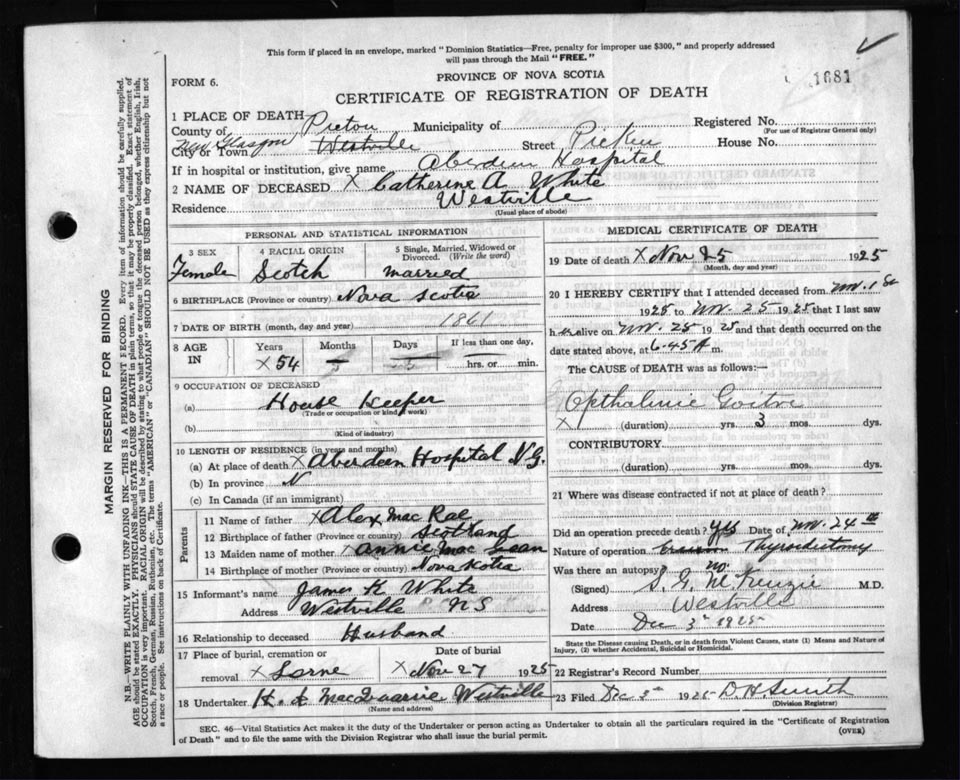 This form if placed in an envelope, marked "Dominion Statistics—Free, penalty for improper use $300," and properly addressed
will pass through the Mail "FREE."
FORM 6.
PROVINCE OF NOVA SCOTIA
1681
CERTIFICATE OF REGISTRATION OF DEATH
1 PLACE OF DEATH
County of Pictou Municipality of Registered No.
(For use of Registrar General only)
New Glasgow
City or Town Westville Street House No.
If in hospital or institution, give name Aberdeen Hospital
2 NAME OF DECEASED X Catherine A. White
Residence Westville
(Usual place of abode)
PERSONAL AND STATISTICAL INFORMATION
3 SEX 4 RACIAL ORIGIN 5 Single, Married, Widowed or Divorced. (Write the word)
Female Scotch married
6 BIRTHPLACE (Province or country) Nova Scotia
7 DATE OF BIRTH (month, day and year) 1861
8 AGE IN Years Months Days If less than one day,
X 54 hrs. or min.
9 OCCUPATION OF DECEASED
(a) House Keeper
(Trade or occupation or kind of work)
(b)
(Kind of industry)
10 LENGTH OF RESIDENCE (in years and months)
(a) At place of death X Aberdeen Hospital N.G.
(b) In province N
(c) In Canada (if an immigrant)
Parents
11 Name of father X Alex Mac Rae
12 Birthplace of father (Province or country) Scotland
13 Maiden name of mother X Annie Mac Lean
14 Birthplace of mother (Province or country) Nova Scotia
15 Informant's name James K White
Address Westville N S
16 Relationship to deceased Husband
17 Place of burial, cremation or removal Date of burial
X Lorne X Nov 27 1925
18 Undertaker Westville
(Name and address)
MEDICAL CERTIFICATE OF DEATH
19 Date of death X Nov 25 1925
(Month, day and year)
20 I HEREBY CERTIFY that I attended deceased from Nov. 1st
1925 to Nov. 25 1925 that I last saw
her alive on Nov. 25 1925 and that death occurred on
date stated above, at 6.45 A m.
The CAUSE of DEATH was as follows:—
Opthalmic Goitre
X (duration) yrs. 3 mos. dys.
CONTRIBUTORY
(duration) yrs. mos. dys.
21 Where was disease contracted if not at place of death?
Did an operation precede death? Yes Date of Nov. 24th
Nature of operation Thyroidectomy
Was there an autopsy? no.
(Signed) S. G. McKenzie M.D.
Address Westville
Date Dec 3rd 1925
State the Disease causing Death, or in death from Violent Causes, state (1) Means and Nature of
Injury, (2) whether Accidental, Suicidal or Homicidal.
22 Registrar's Record Number
23 Filed Dec 3rd 1925 D H Smith
(Division Registrar)
SEC. 46—Vital Statistics Act makes it the duty of the Undertaker or person acting as Undertaker to obtain all the particulars required in the "Certificate of Registration
of Death" and to file the same with the Division Registrar who shall issue the burial permit.
(OVER)
MARGIN RESERVED FOR BINDING
N.B.—WRITE PLAINLY WITH UNFADING INK—THIS IS A PERMANENT RECORD. Every item of information should be carefully supplied.
AGE should be stated EXACTLY. PHYSICIANS should STATE CAUSE OF DEATH in plain terms, so that it may be properly classified. Exact statement of
OCCUPATION is very important. RACIAL ORIGIN will be described by stating to what people or tongue the deceased person belonged, whether English, Irish,
Scotch, French, German, Russian, Ruthenian, etc. The terms "AMERICAN" or "CANADIAN" SHOULD NOT BE USED as they express citizenship but not
a race or people. See instructions on back of Certificate.